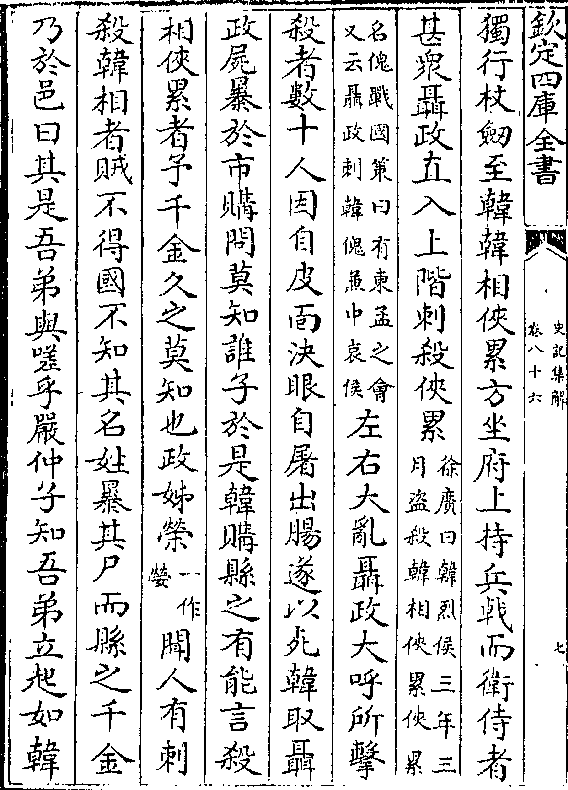 欽定四庫全書
史記集解
卷八十六
七
獨行杖劒至韓韓相俠累方坐府上持兵戟而衛侍者
甚衆聶政直入上階刺殺俠累
徐廣曰韓烈侯三年三
月盜殺韓相俠累俠累
名傀戰國策曰有東孟之會
又云聶政刺韓傀兼中哀侯
左右大亂聶政大呼所擊
殺者數十人因自皮面決眼自屠出腸遂以死韓取聶
政屍暴於市購問莫知誰子於是韓購縣之有能言殺
相俠累者予千金久之莫知也政姊榮
一作
嫈
聞人有刺
殺韓相者賊不得國不知其名姓暴其尸而縣之千金
乃於邑曰其是吾弟與嗟乎嚴仲子知吾弟立起如韓